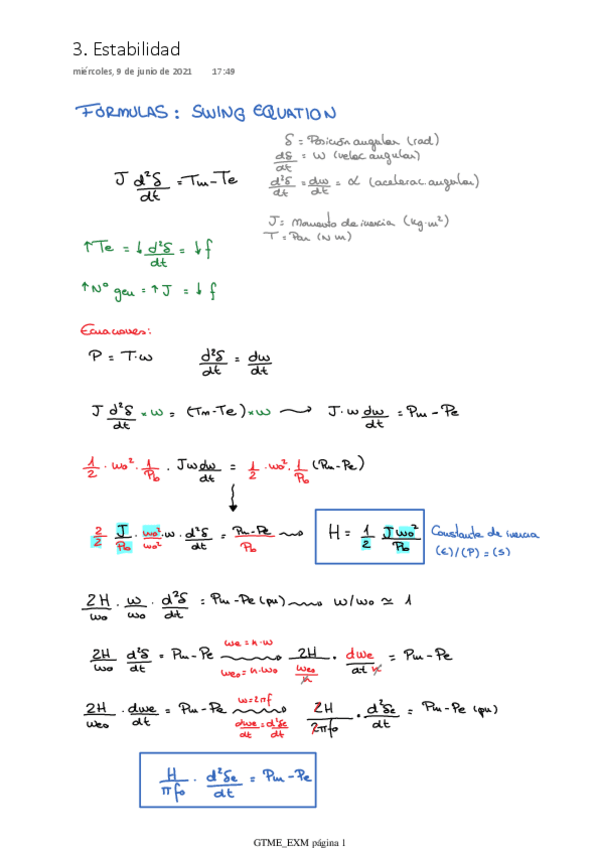 3. Estabilidad
miércoles, 9 de junio de 2021 17:49
FÓRMULAS: SWING EQUATION
δ = Posición angular (rad)
dδ/dt = ω (veloc angular)
J d²δ/dt = Tm - Te
d²δ/dt = dω/dt = α (acelerac. angular)
J = Momento de inercia (kg·m²)
T = Par (N m)
↑Te = ↓ d²δ/dt = ↓f
↑Nº gen = ↑J = ↓f
Ecuaciones:
P = T·ω d²δ/dt = dω/dt
J d²δ/dt × ω = (Tm-Te) × ω → J·ω dω/dt = Pm - Pe
1/2 · ωo² · 1/Pb · Jω dω/dt = 1/2 · ωo² · 1/Pb (Pm-Pe)
2/2 · J/Pb · ωo²/ωo² · ω · d²δ/dt = Pm-Pe/Pb → H = 1/2 Jωo²/Pb Constante de inercia
(E)/(P) = (s)
2H/ωo · ω/ωo · d²δ/dt = Pm-Pe (pu) → ω/ωo ≃ 1
2H/ωo d²δ/dt = Pm-Pe ωe = n·ω ωeo = n·ωo 2H/(ωeo/n) · dωe/dt n = Pm-Pe
2H/ωeo · dωe/dt = Pm-Pe ω=2πf dωe/dt = d²δe/dt 2H/2πfo · d²δe/dt = Pm-Pe (pu)
H/πfo · d²δe/dt = Pm-Pe
GTME_EXM página 1